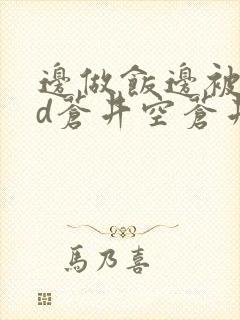 邊做飯邊被
d蒼井空蒼井
馬乃喜